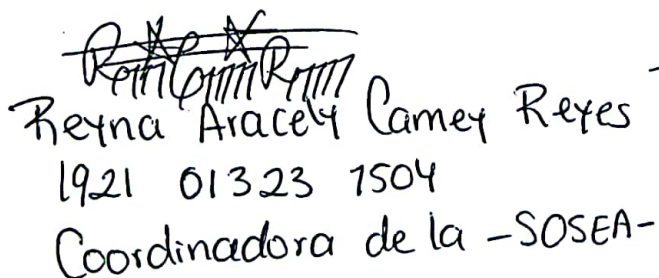 Reyna Aracely Camey Reyes
1921 01323 1504
Coordinadora de la -SOSEA-